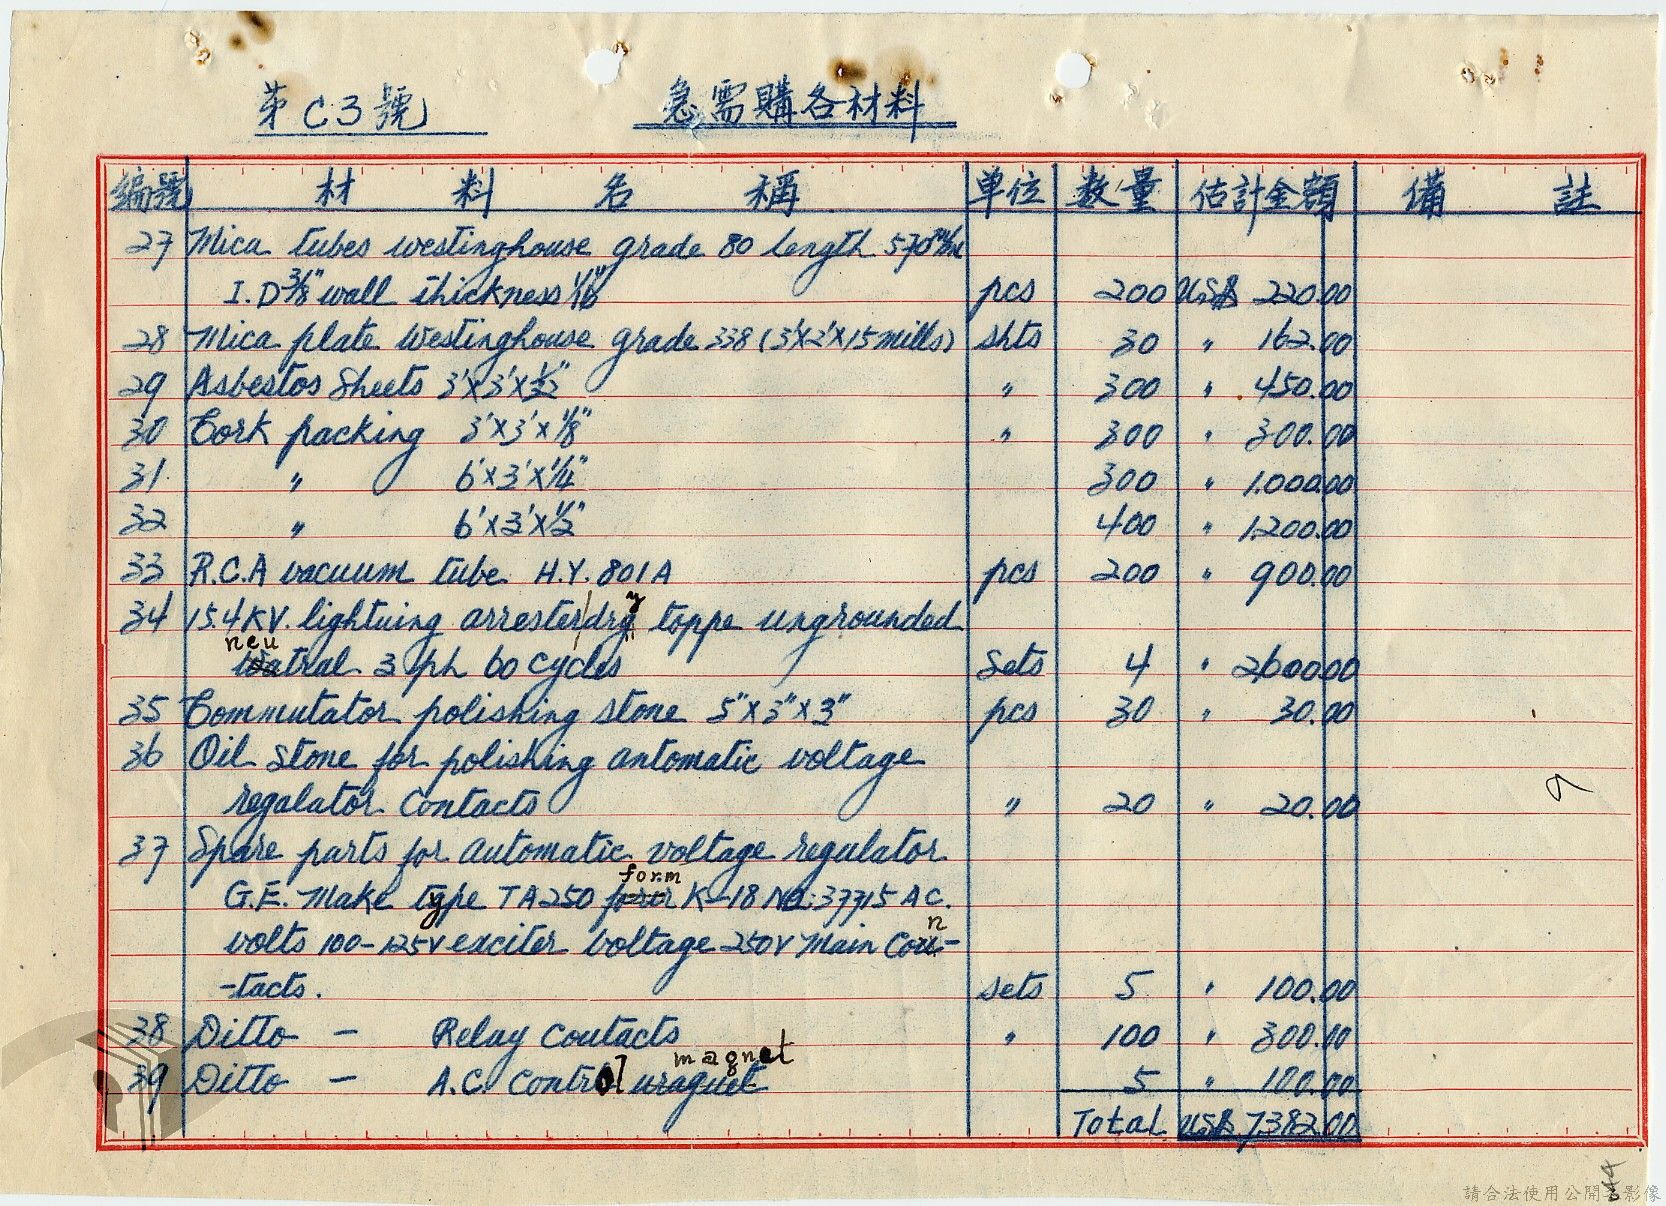 第C3號 急需購各材料
編號 材料名稱 单位 数量 估計金額 備註
27 Mica tubes westinghouse grade 80 length 570 m/m
I.D 3/8" wall thickness 1/16" pcs 200 US$ 220.00
28 Mica plate Westinghouse grade 338 (3'x2'x15 mills) shts 30 " 162.00
29 Asbestos Sheets 3'x3'x1/32" " 300 " 450.00
30 Cork packing 3'x3'x1/8" " 300 " 300.00
31 " 6'x3'x1/4" 300 " 1.000.00
32 " 6'x3'x1/2" 400 " 1.200.00
33 R.C.A vacuum tube H.Y. 801A pcs 200 " 900.00
34 15.4 KV. lightuing arrester dry toppe ungrounded
neu
tral 3 ph 60 cycles Sets 4 " 2600.00
35 Commutator polishing stone 5"x3"x3" pcs 30 " 30.00
36 Oil Stone for polishing antomatic voltage
regalator Contacts " 20 " 20.00
37 Spare parts for automatic voltage regulator
form
G.E. Make type TA250 K-18 No. 37715 A C.
n
volts 100-125V exciter voltage 250V Main Con-
-tacts. sets 5 " 100.00
38 Ditto - Relay Coutacts " 100 " 300.00
magnet
39 Ditto - A.C. Control uraguet 5 " 100.00
Total US$ 7382.00
請合法使用公開之影像